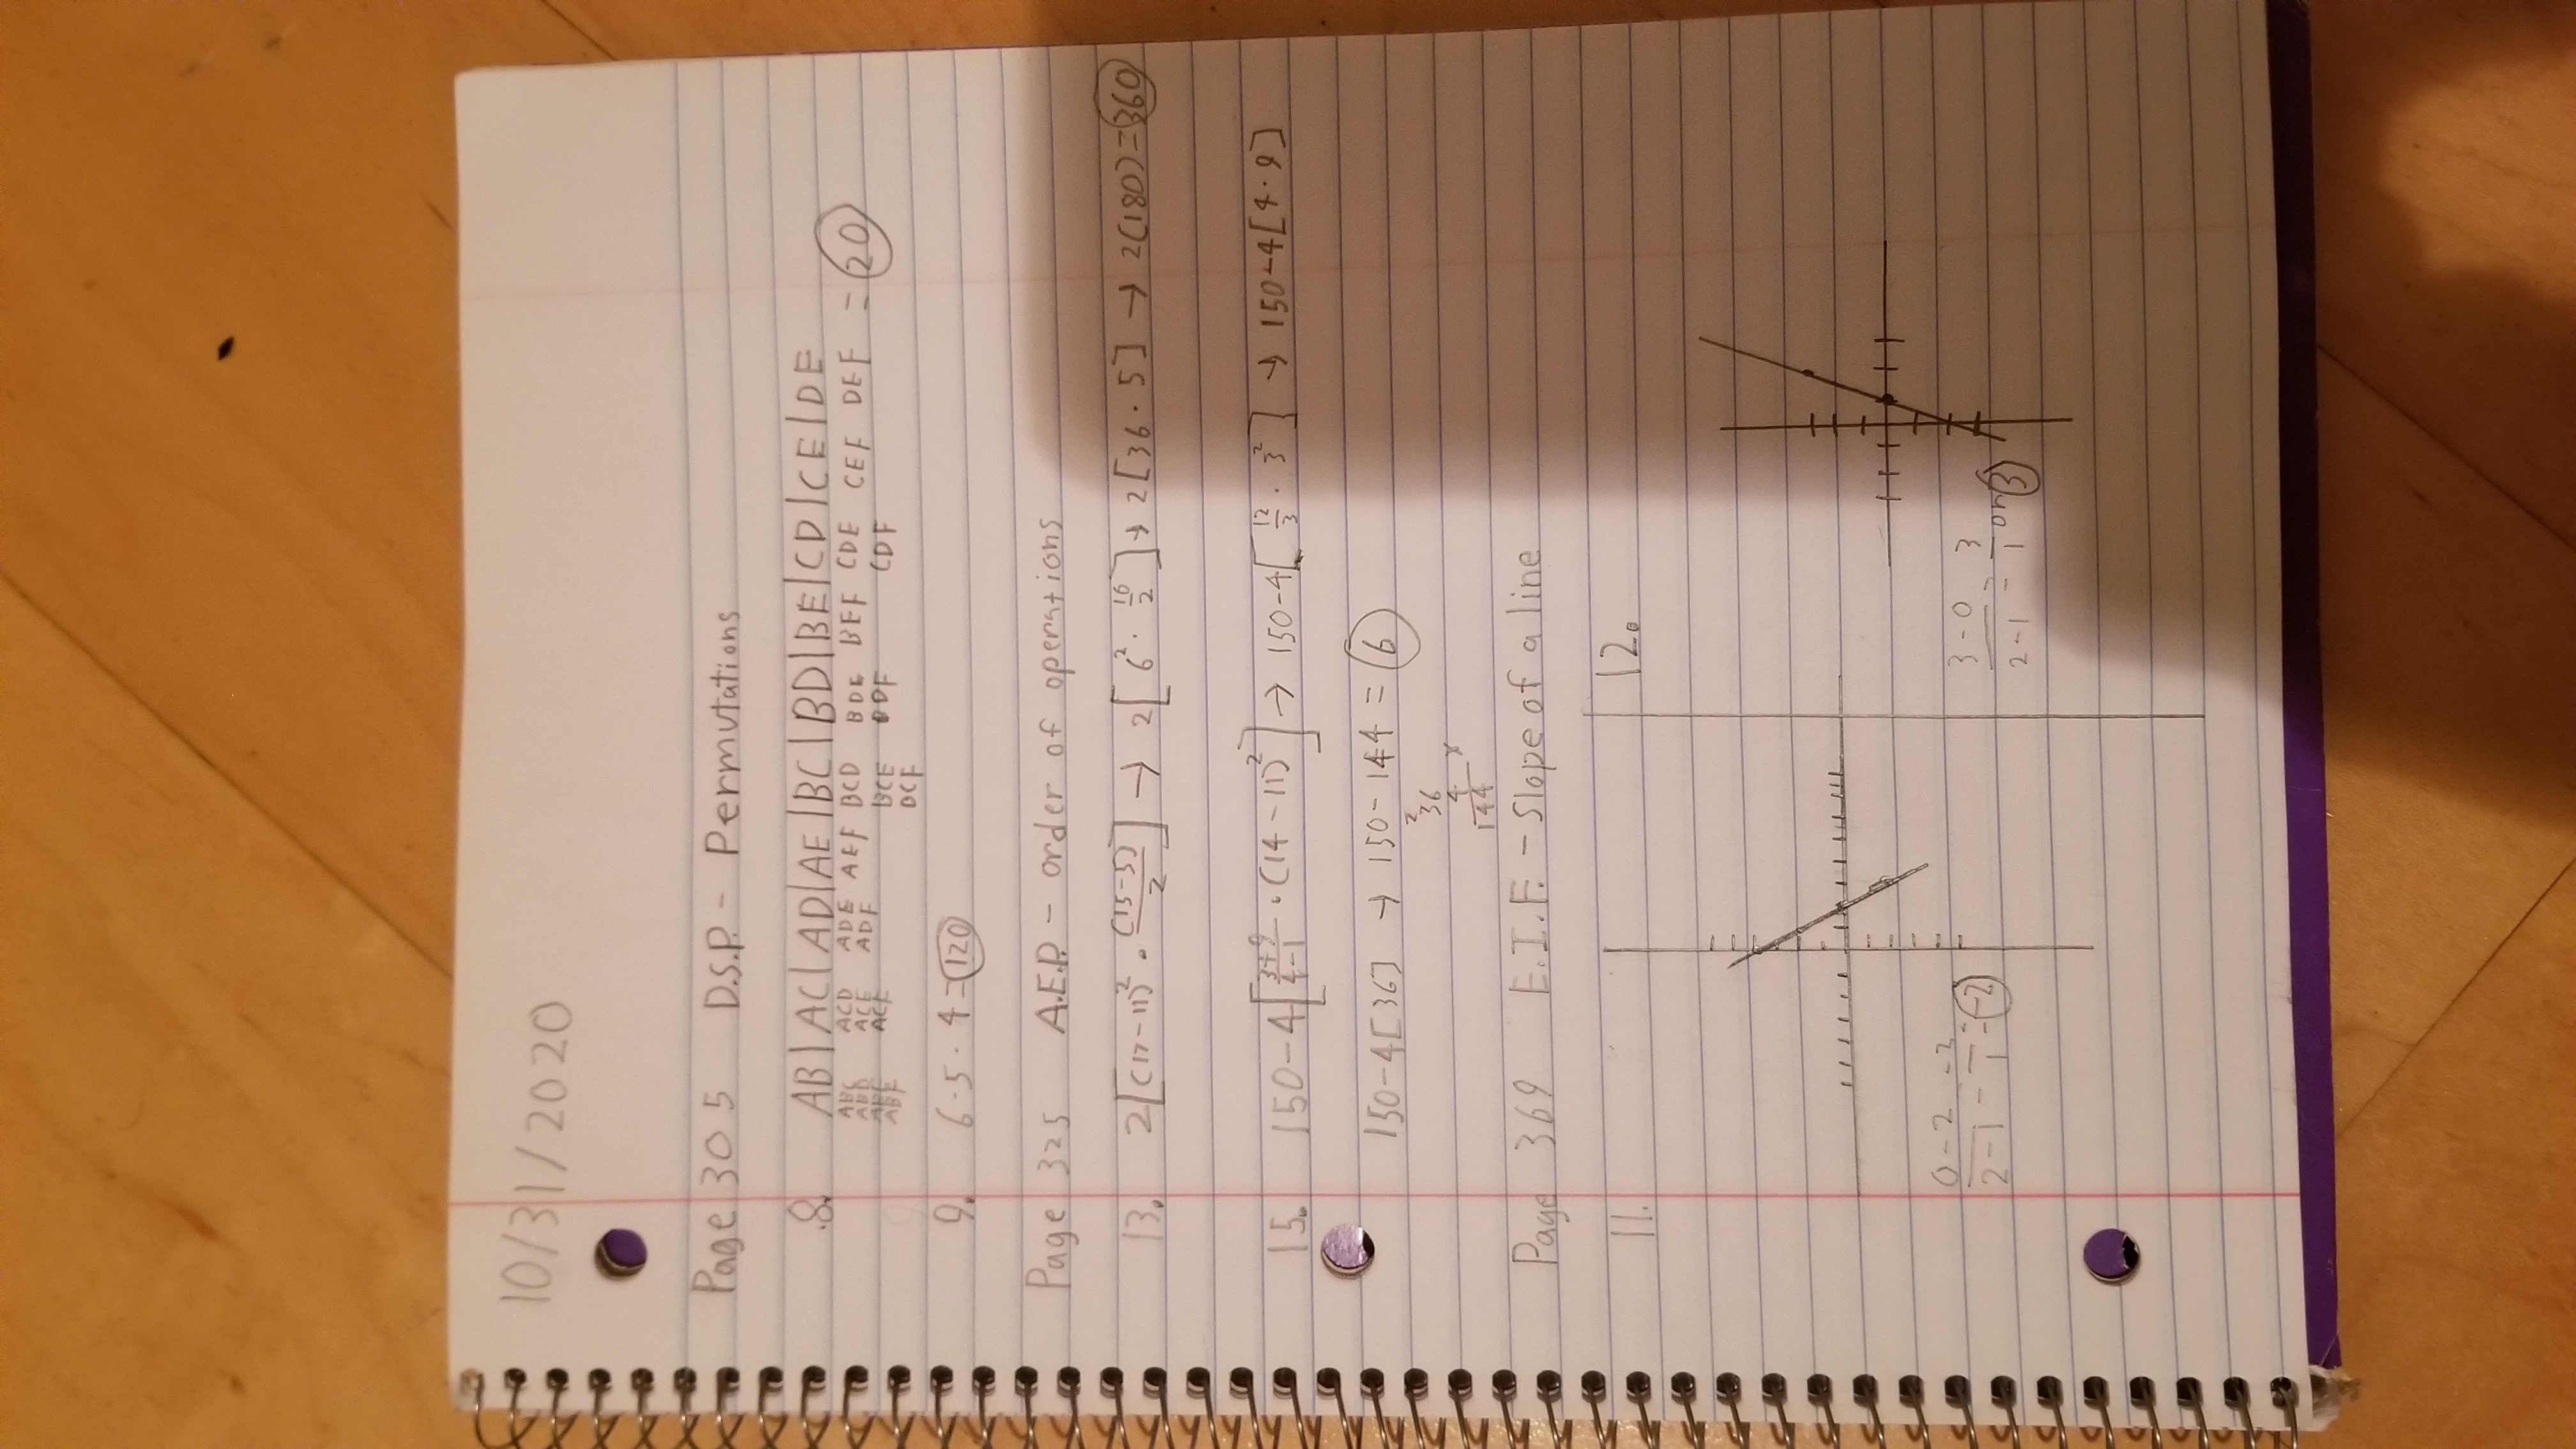 10/31/2020
Page 305 D.S.P. - Permutations
8. AB | AC | AD | AE | BC | BD | BE | CD | CE | DE
ABC ACD ADE AEF BCD BDE BEF CDE CEF DEF = 20
ABD ACE ADF BCE BDF CDF
ACF BCF
ABF
9. 6·5·4=120
Page 325 A.E.P. - order of operations
13. 2[(17-11)²·(15-5)/2] → 2[6²·10/2] → 2[36·5] → 2(180)=360
15. 150-4[3+9/4-1·(14-11)²] → 150-4[12/3·3²] → 150-4[4·9]
150-4[36] → 150-144 = 6
2
36
4 x
144
Page 369 E.I.F. - Slope of a line
11. 12.
0-2/2-1 = -2/1 = -2
3-0/2-1 = 3/1 or 3